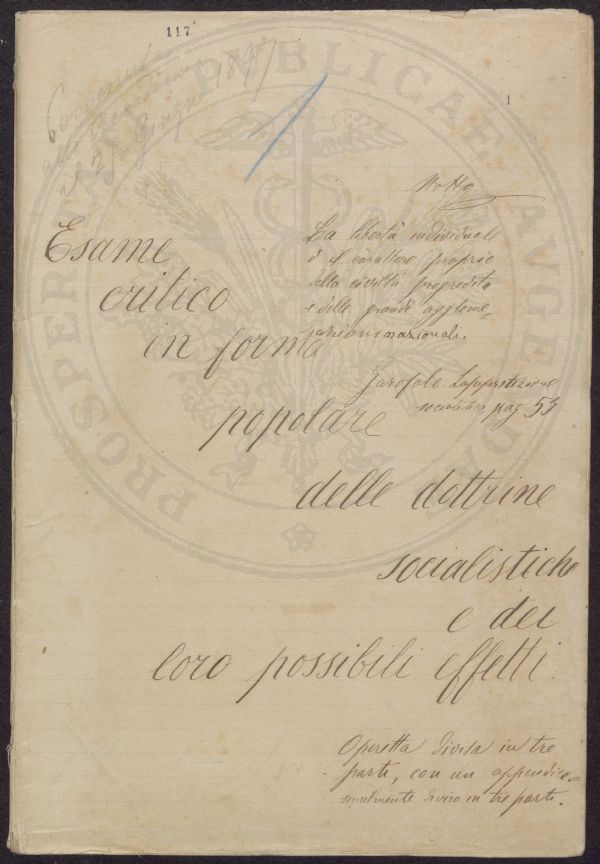 117
Pervenuta
alla Accademia
il 25 Giugno 1897
1
Motto
La libertà individuale
è il carattere proprio
della civiltà progredita
e delle grandi agglome-
razioni nazionali.
Garofalo. La superstizione
socialista pag. 53
Esame
critico
in forma
popolare
delle dottrine
socialistiche
e dei
loro possibili effetti.
Operetta divisa in tre
parti, con un appendice
similmente divisa in tre parti.
PROSPERITATI PUBLICAE AUGENDAE